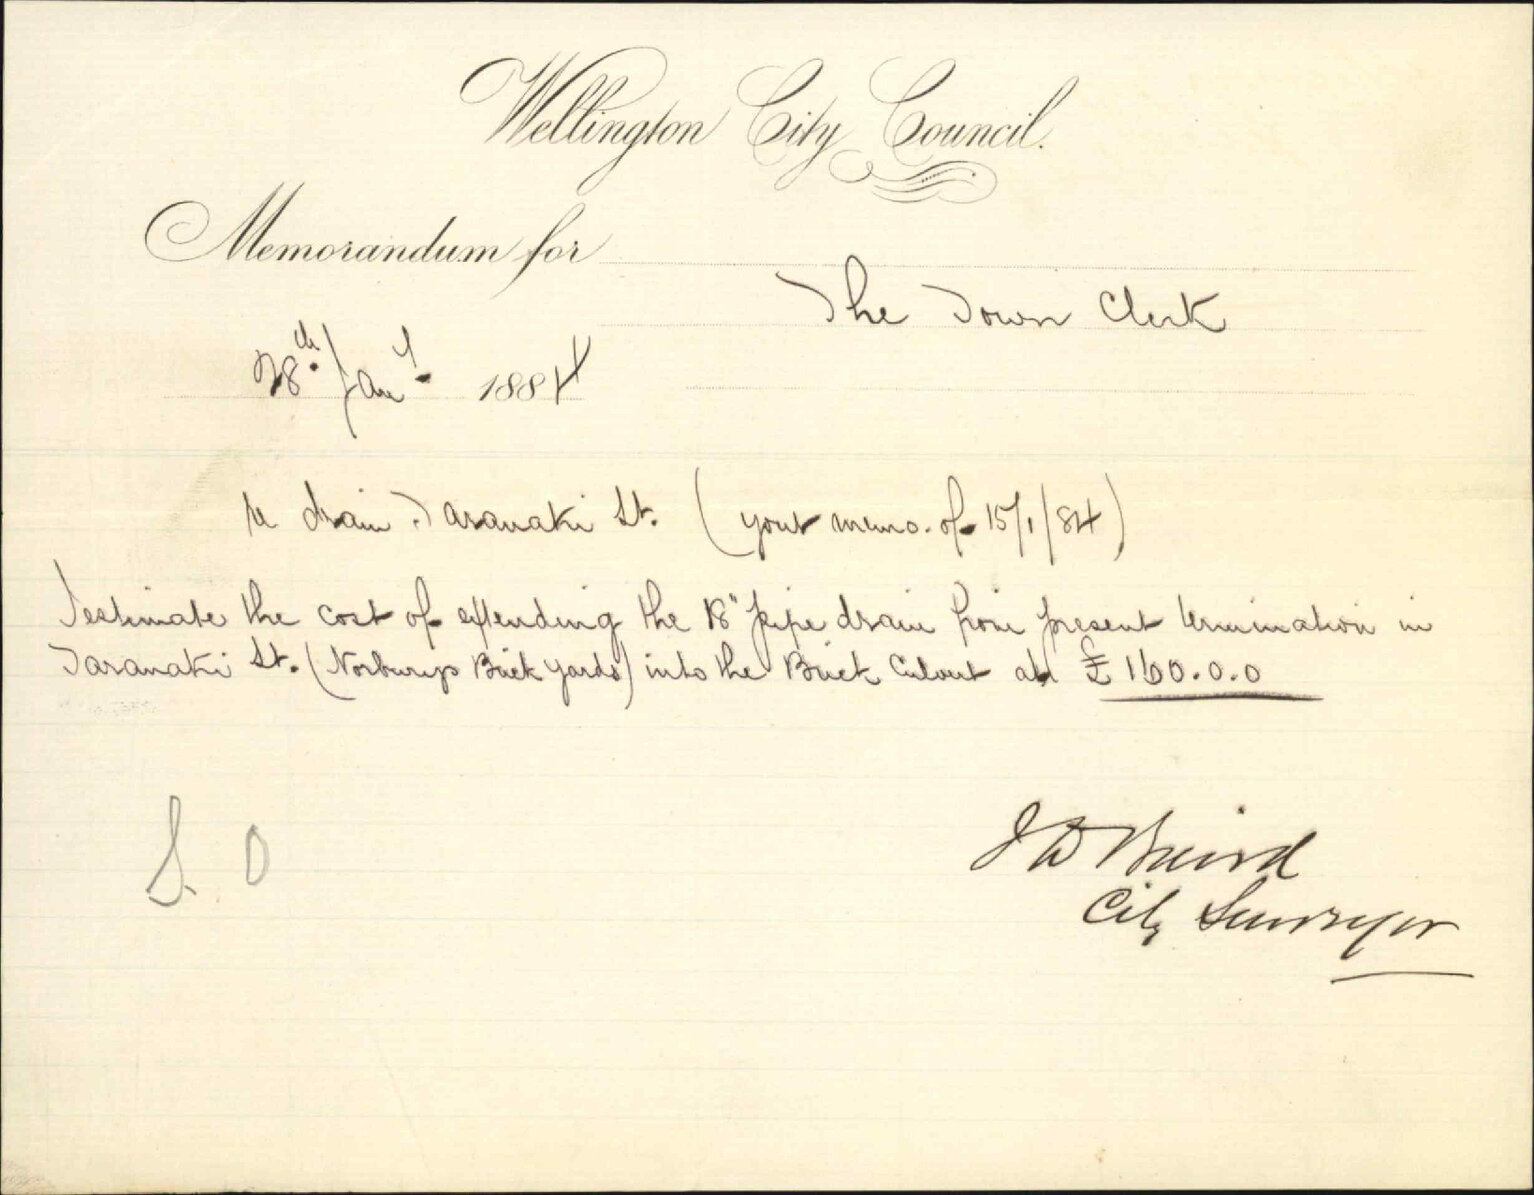 Wellington City Council.
Memorandum for
The Town Clerk
28th. Jany. 1884
re drain Taranaki St. (your memo. of 15/1/84)
I estimate the cost of extending the 18" pipe drain from present termination in
Taranaki St. (Norburys Brick yards) into the Brick Culvert at £160.0.0
S. O
J D Baird
City Surveyor